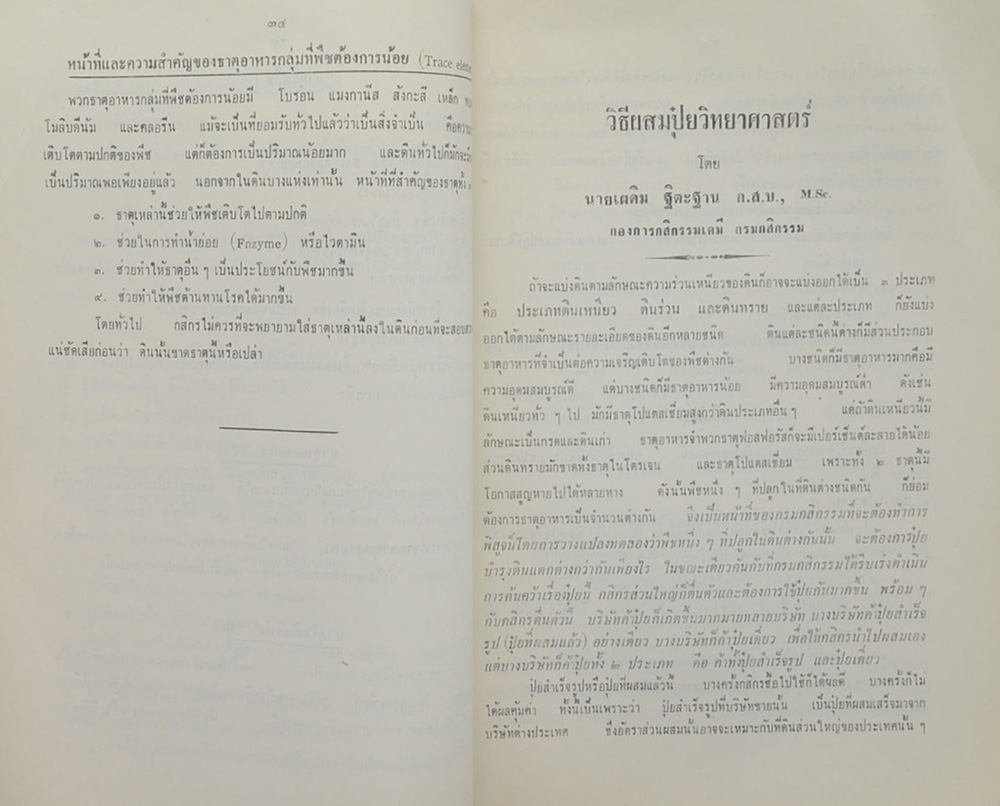 ๓๔
หน้าที่และความสำคัญของธาตุอาหารกลุ่มที่พืชต้องการน้อย (Trace eleme
พวกธาตุอาหารกลุ่มที่พืชต้องการน้อยมี โบร่อน แมงกานีส สังกะสี เหล็ก
โมลิบดีนัม และคลอรีน แม้จะเป็นที่ยอมรับทั่วไปแล้วว่าเป็นสิ่งจำเป็น คือความ
เติบโตตามปกติของพืช แต่ก็ต้องการเป็นปริมาณน้อยมาก และดินทั่วไปก็มักจะ
เป็นปริมาณพอเพียงอยู่แล้ว นอกจากในดินบางแห่งเท่านั้น หน้าที่ที่สำคัญของธาตุทั้ง
๑. ธาตุเหล่านี้ช่วยให้พืชเติบโตไปตามปกติ
๒. ช่วยในการทำน้ำย่อย (Fnzyme) หรือไวตามิน
๓. ช่วยทำให้ธาตุอื่น ๆ เป็นประโยชน์กับพืชมากขึ้น
๔. ช่วยทำให้พืชต้านทานโรคได้มากขึ้น
โดยทั่วไป กสิกรไม่ควรที่จะพยายามใส่ธาตุเหล่านี้ลงในดินก่อนที่จะสอบสวน
แน่ชัดเสียก่อนว่า ดินนั้นขาดธาตุนี้หรือเปล่า
วิธีผสมปุ๋ยวิทยาศาสตร์
โดย
นายเผดิม ฐิตะฐาน ก.ส.บ., M.Sc.
กองการกสิกรรมเคมี กรมกสิกรรม
ถ้าจะแบ่งดินตามลักษณะความร่วนเหนียวของดินก็อาจจะแบ่งออกได้เป็น ๓ ประเภท
คือ ประเภทดินเหนียว ดินร่วน และดินทราย และแต่ละประเภท ก็ยังแบ่ง
ออกได้ตามลักษณะรายละเอียดของดินอีกหลายชนิด ดินแต่ละชนิดนี้ต่างก็มีส่วนประกอบ
ธาตุอาหารที่จำเป็นต่อความเจริญเติบโตของพืชต่างกัน บางชนิดก็มีธาตุอาหารมากคือมี
ความอุดมสมบูรณ์ดี แต่บางชนิดก็มีธาตุอาหารน้อย มีความอุดมสมบูรณ์ต่ำ ดังเช่น
ดินเหนียวทั่ว ๆ ไป มักมีธาตุโปแตสเซี่ยมสูงกว่าดินประเภทอื่น ๆ แต่ถ้าดินเหนียวนี้มี
ลักษณะเป็นกรดและดินเก่า ธาตุอาหารจำพวกธาตุฟอสฟอรัสก็จะมีเปอร์เซ็นต์ละลายได้น้อย
ส่วนดินทรายมักขาดทั้งธาตุไนโตรเจน และธาตุโปแตสเซี่ยม เพราะทั้ง ๒ ธาตุนี้มี
โอกาสสูญหายไปได้หลายทาง ดังนั้นพืชหนึ่ง ๆ ที่ปลูกในที่ดินต่างชนิดกัน ก็ย่อม
ต้องการธาตุอาหารเป็นจำนวนต่างกัน จึงเป็นหน้าที่ของกรมกสิกรรมที่จะต้องทำการ
พิสูจน์โดยการวางแปลงทดลองว่าพืชหนึ่ง ๆ ที่ปลูกในดินต่างกันนั้น จะต้องการปุ๋ย
บำรุงดินแตกต่างกว่ากันเพียงไร ในขณะเดียวกันกับที่กรมกสิกรรมได้รีบเร่งดำเนิน
การค้นคว้าเรื่องปุ๋ยนี้ กสิกรส่วนใหญ่ก็ตื่นตัวและต้องการใช้ปุ๋ยกันมากขึ้น พร้อม ๆ
กับกสิกรตื่นตัวนี้ บริษัทค้าปุ๋ยก็เกิดขึ้นมากมายหลายบริษัท บางบริษัทค้าปุ๋ยสำเร็จ
รูป (ปุ๋ยที่ผสมแล้ว) อย่างเดียว บางบริษัทก็ค้าปุ๋ยเดี่ยว เพื่อให้กสิกรนำไปผสมเอง
แต่บางบริษัทก็ค้าปุ๋ยทั้ง ๒ ประเภท คือ ค้าทั้งปุ๋ยสำเร็จรูป และปุ๋ยเดี่ยว
ปุ๋ยสำเร็จรูปหรือปุ๋ยที่ผสมแล้วนี้ บางครั้งกสิกรซื้อไปใช้ก็ได้ผลดี บางครั้งก็ไม่
ได้ผลคุ้มค่า ทั้งนี้เป็นเพราะว่า ปุ๋ยสำเร็จรูปที่บริษัทขายนั้น เป็นปุ๋ยที่ผสมเสร็จมาจาก
บริษัทต่างประเทศ ซึ่งอัตราส่วนผสมนั้นอาจจะเหมาะกับที่ดินส่วนใหญ่ของประเทศนั้น ๆ